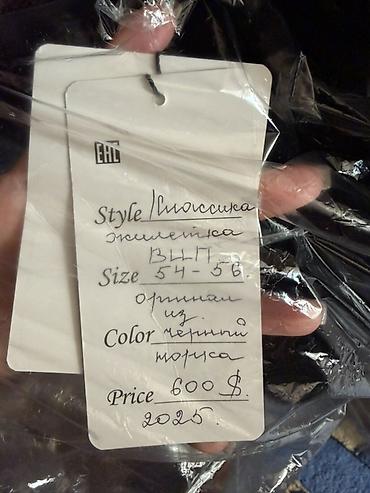 EAC
Style Классика
жилетка
ВЦП
Size 54-56
оригинал
из.
Color черный
норка
Price 600 $.
2025.